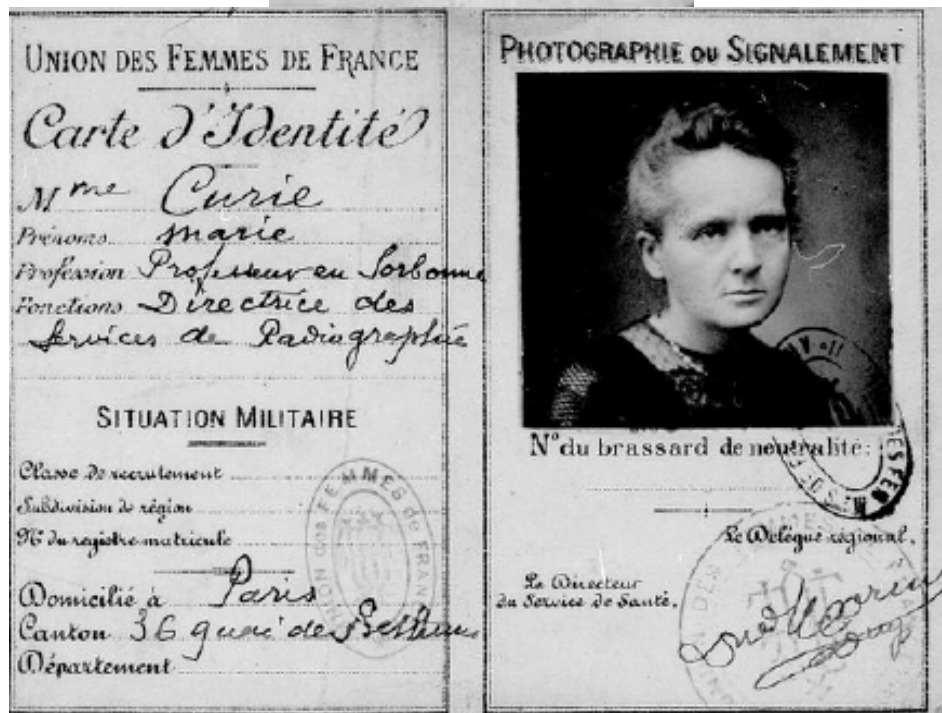 UNION DES FEMMES DE FRANCE
Carte d'Identité
Mme Curie
Prénoms marie
Profession Professeur en Sorbonne
Fonctions Directrice des
Services de Radiographie
SITUATION MILITAIRE
Classe de recrutement
Subdivision de région
No du registre matricule
Domicilié à Paris
Canton 36 quai de Béthune
Département
UNION des FEMMES de FRANCE
PHOTOGRAPHIE OU SIGNALEMENT
No du brassard de neutralité:
Le Délégué régional,
Le Directeur
du Service de Santé,